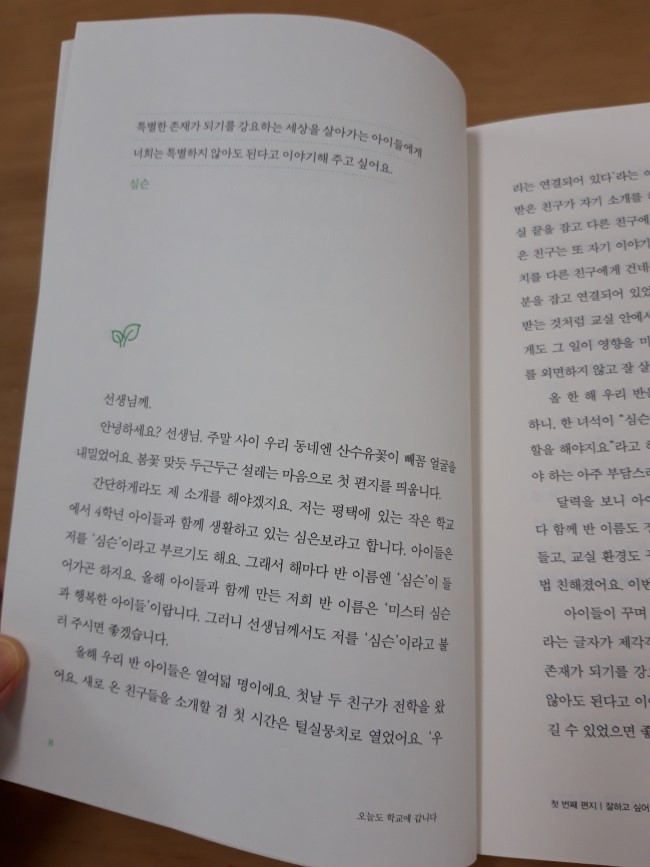 특별한 존재가 되기를 강요하는 세상을 살아가는 아이들에게
너희는 특별하지 않아도 된다고 이야기해 주고 싶어요.
심슨
선생님께.
안녕하세요? 선생님. 주말 사이 우리 동네엔 산수유꽃이 빼꼼 얼굴을
내밀었어요. 봄꽃 맞듯 두근두근 설레는 마음으로 첫 편지를 띄웁니다.
간단하게라도 제 소개를 해야겠지요. 저는 평택에 있는 작은 학교
에서 4학년 아이들과 함께 생활하고 있는 심은보라고 합니다. 아이들은
저를 ‘심슨’이라고 부르기도 해요. 그래서 해마다 반 이름엔 ‘심슨’이 들
어가곤 하지요. 올해 아이들과 함께 만든 저희 반 이름은 ‘미스터 심슨
과 행복한 아이들’이랍니다. 그러니 선생님께서도 저를 ‘심슨’이라고 불
러 주시면 좋겠습니다.
올해 우리 반 아이들은 열여덟 명이에요. 첫날 두 친구가 전학을 왔
어요. 새로 온 친구들을 소개할 겸 첫 시간은 털실뭉치로 열었어요. ‘우
8
오늘도 학교에 갑니다
라는 연결되어 있다’라는
받은 친구가 자기 소개를
실 끝을 잡고 다른 친구에
은 친구는 또 자기 이야기
치를 다른 친구에게 건네
분을 잡고 연결되어 있었
받는 것처럼 교실 안에서
게도 그 일이 영향을 미
를 외면하지 않고 잘 살
올 한 해 우리 반을
하니, 한 녀석이 “심슨
할을 해야지요”라고
야 하는 아주 부담스러
달력을 보니 아이
다 함께 반 이름도 정
들고, 교실 환경도
범 친해졌어요. 이번
아이들이 꾸며
라는 글자가 제각각
존재가 되기를 강요
않아도 된다고 이야
길 수 있었으면 좋
첫 번째 편지 | 잘하고 싶어